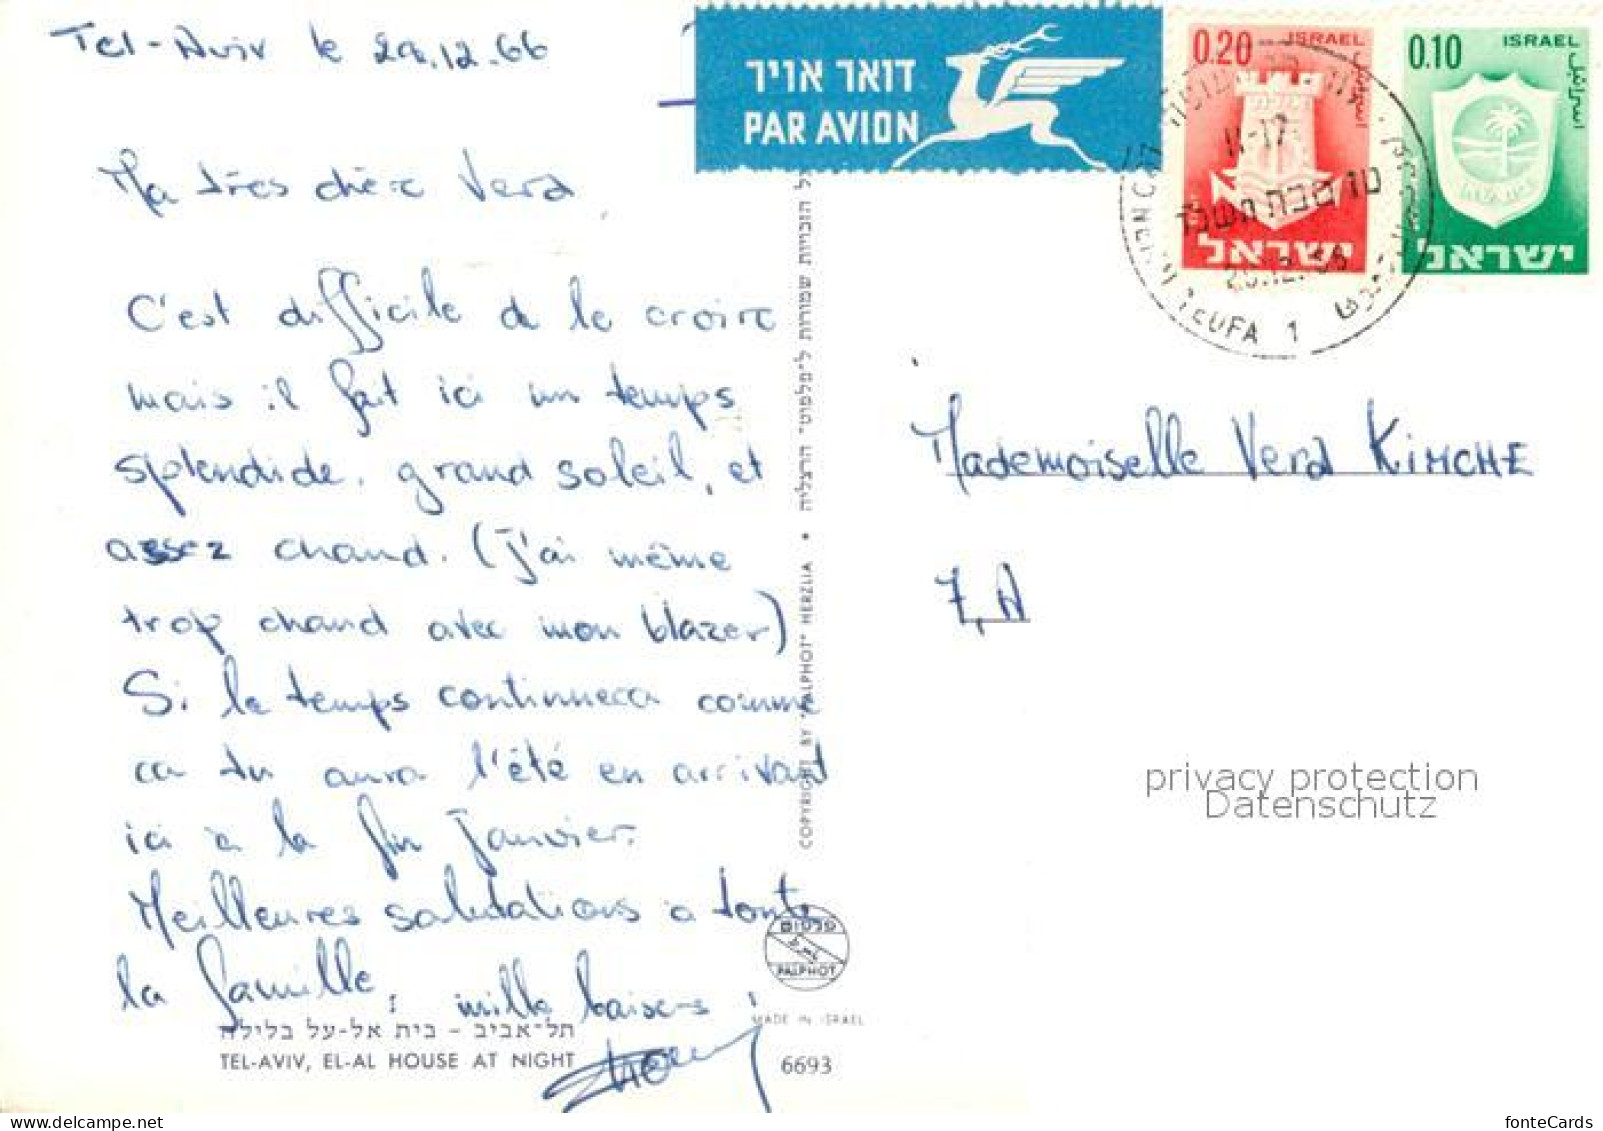 Tel-Aviv le 29.12.66
Ma très chère Vera
C'est difficile de le croire
mais il fait ici un temps
splendide. grand soleil, et
assez chaud. (J'ai même
trop chaud avec mon blazer)
Si le temps continuera comme
ca tu aura l'été en arrivant
ici à la fin Janvier.
Meilleures salutations a toute
la famille, mille baisers
תל-אביב – בית אל-על בלילה
TEL-AVIV, EL-AL HOUSE AT NIGHT
6693
COPYRIGHT BY "PALPHOT" HERZLIA • כל הזכויות שמורות ל"פלפוט" הרצליה
פלפוט
PALPHOT
MADE IN ISRAEL
דואר אויר
PAR AVION
0.20 ISRAEL
اسرائيل
ישראל
0.10 ISRAEL
اسرائيل
ישראל
11-17
TEUFA 1
Mademoiselle Vera KIMCHE
privacy protection
Datenschutz
fonteCards